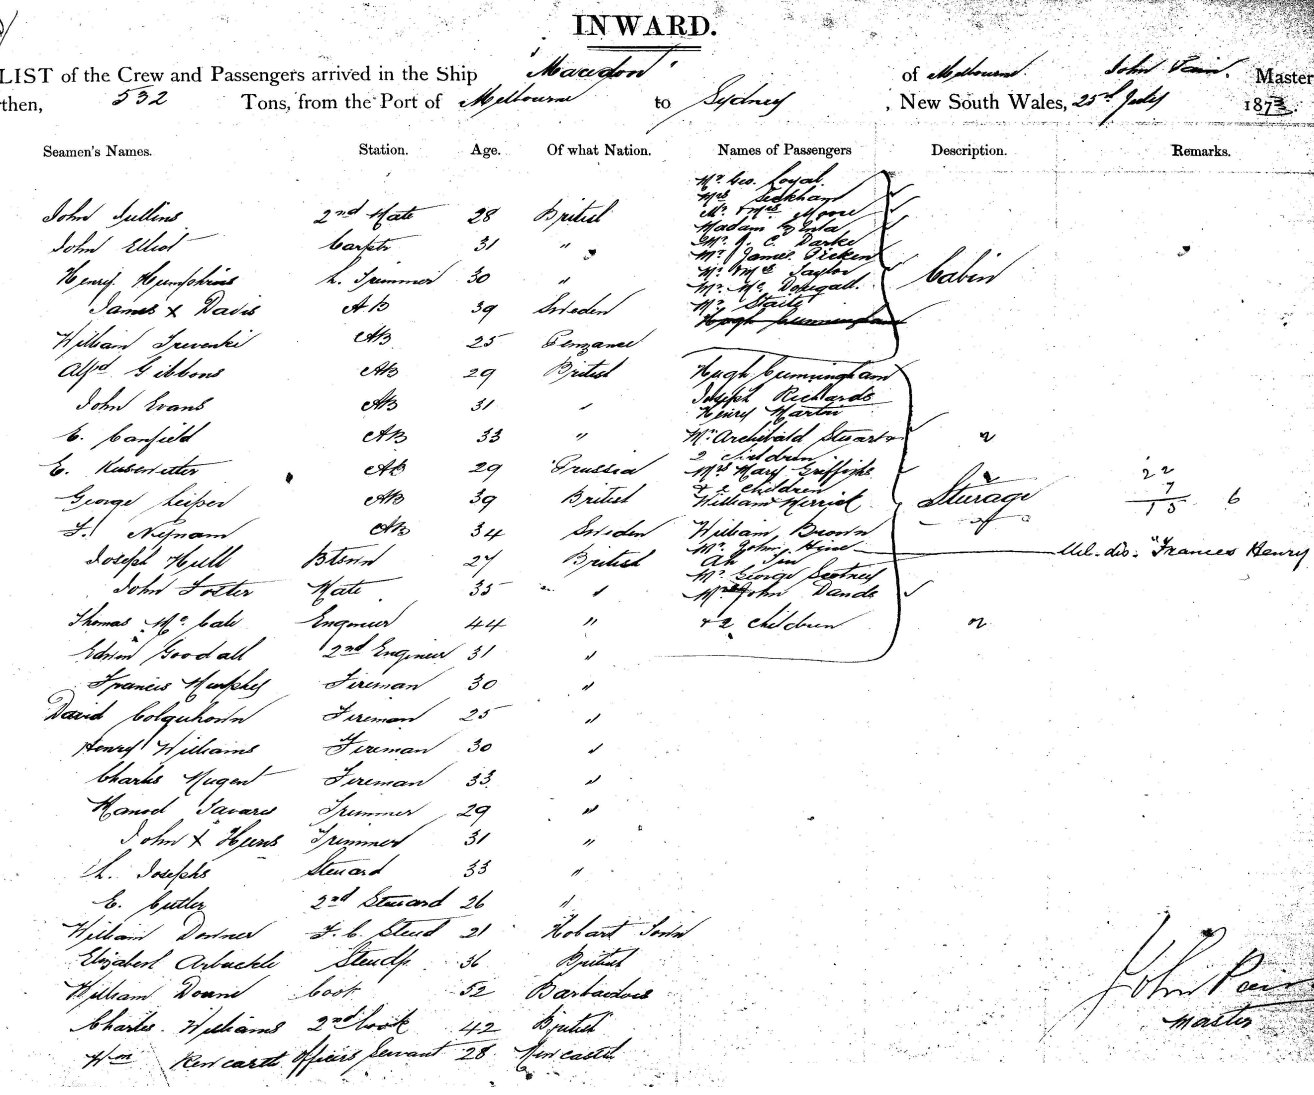 INWARD.
LIST of the Crew and Passengers arrived in the Ship "Macedon" of Melbourne John Pain. Master
then, 532 Tons, from the Port of Melbourne to Sydney, New South Wales, 25th July 1873.
Seamen's Names. Station. Age. Of what Nation. Names of Passengers Description. Remarks.
Mr Geo. Loyal.
Mrs
John Jullins 2nd Mate 28 British Mr & Mrs Moore
Madam
John Elliot Carptr 31 " Mr J. C. Darke
Mr James Picken
Henry Humphries L. Trimmer 30 " Mr & Mrs Taylor Cabin
Mr Mc Donegall.
James X Davis AB 39 Sweden Mr Staite
Hugh Cunningham
William AB 25 Penzance
Alfd Gibbons AB 29 British Hugh Cunningham
Joseph Richards
John Evans AB 31 " Henry Martin
E. Canfield AB 33 " Mrs Archibald Stuart & 2
2 children
E. AB 29 Prussia Mrs Mary Griffiths 22
& 2 children 7
George Leiper AB 39 British William Sturage 15 6
F. Nynam AB 34 Sweden William Brown
Mr John Hine Mel. dis. "Frances Henry
Joseph Hill Btswn 27 British Ah
Mr George
John Foster Mate 35 " " Mrs John Dands
Thomas Mc Cale Engineer 44 " & 2 children 2
Edwin Goodall 2nd Engineer 31 "
Francis Murphy Fireman 30 "
David Colquhown Fireman 25 "
Henry Williams Fireman 30 "
Charles Nugent Fireman 33 "
Manod Tavares Trimmer 29 "
John X Trimmer 31 "
L. Josephs Steward 33 "
E. Cutler 2nd Steward 26 "
William Downer F. C. Stewd 21 Hobart Town
Elizabeth Arbuckle Stewdss 36 British
William Cook 52 Barbadoes
Charles. Williams 2nd Cook 42 British
Wm Officers Servant 28 Newcastle
John Pain
Master